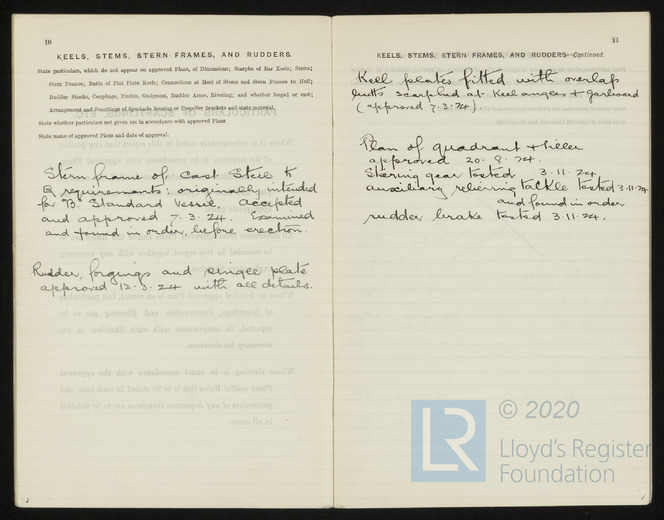 10
KEELS, STEMS, STERN FRAMES, AND RUDDERS.
State particulars, which do not appear on approved Plans, of Dimensions; Scarphs of Bar Keels; Stems;
Stern Frames; Butts of Flat Plate Keels; Connections at Heel of Stems and Stern Frames to Hull;
Rudder Stocks, Couplings, Pintles, Gudgeons, Rudder Arms, Riveting; and whether forged or cast;
Arrangement and Scantlings of Spectacle Bossing or Propeller Brackets and state material.
State whether particulars not given are in accordance with approved Plans
State name of approved Plans and date of approval.
Stern frame of Cast Steel to
B requirements: originally intended
for "B" Standard Vessel. accepted
and approved 7.3.24. Examined
and found in order, before erection.
Rudder, forgings and single plate
approved 12.3.24 with all details.
11
KEELS, STEMS, STERN FRAMES, AND RUDDERS—Continued.
Keel plates fitted with overlap
butts scarphed at Keel angles + garboard
(approved 7.3.24).
Plan of quadrant + tiller
approved 20.8.24.
Steering gear tested 3.11.24.
auxiliary relieving tackle tested 3.11.24.
and found in order
rudder brake tested 3.11.24.
© 2020
LR
Lloyd's Register
Foundation